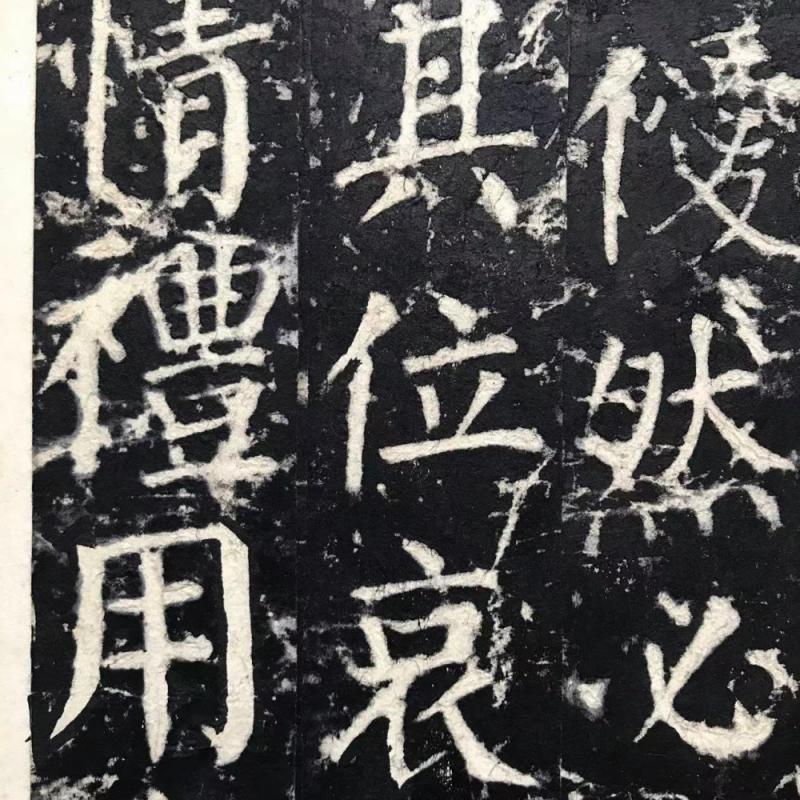 僾然必
其位哀
情禮用